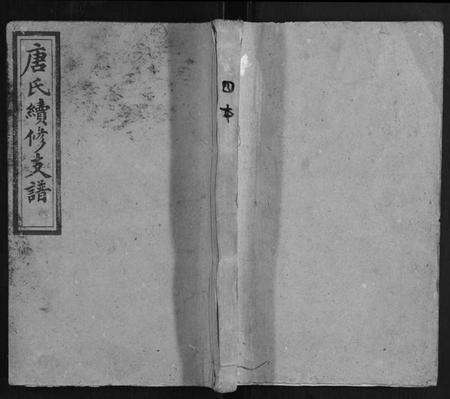 唐氏續修支譜
四本